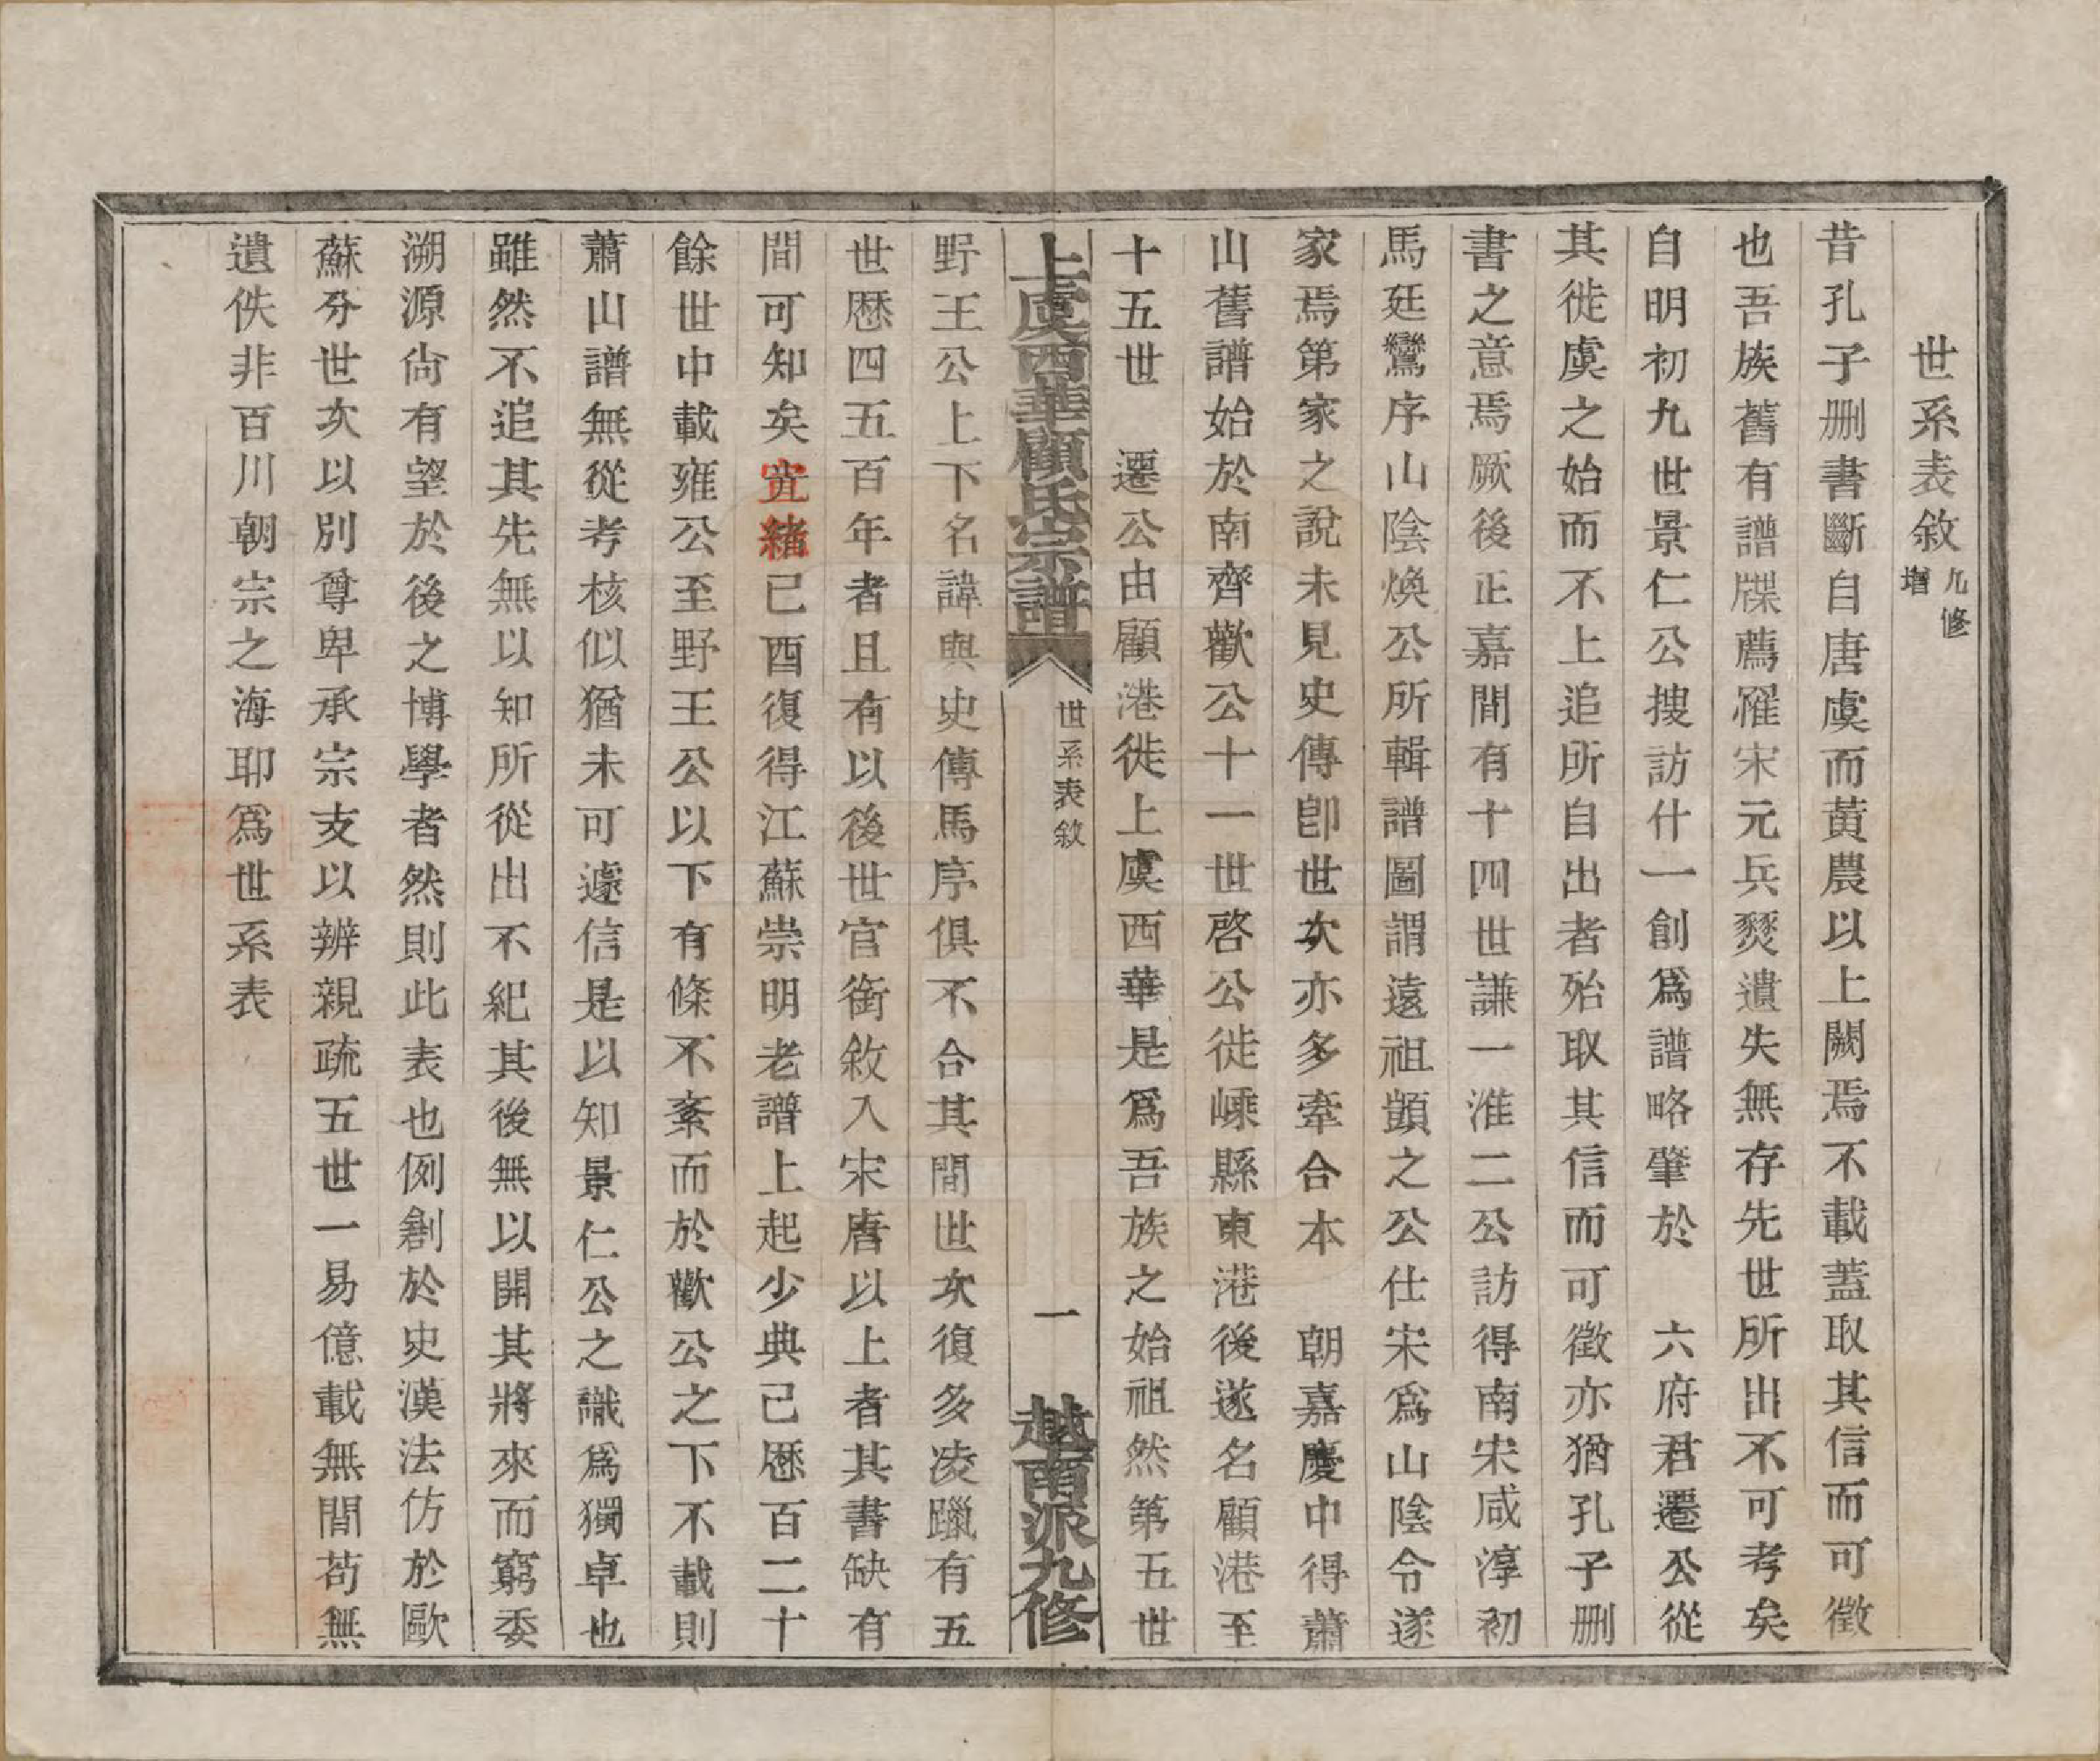 世系表敘 九修增
昔孔子刪書斷自唐虞而黃農以上闕焉不載蓋取其信而可徵
也吾族舊有譜牒薦罹宋元兵燹遺失無存先世所出不可考矣
自明初九世景仁公搜訪什一創爲譜略肇於 六府君遷公從
其徙虞之始而不上追所自出者殆取其信而可徵亦猶孔子刪
書之意焉厥後正嘉間有十四世謙一淮二公訪得南宋咸淳初
馬廷鸞序山陰煥公所輯譜圖謂遠祖顗之公仕宋爲山陰令遂
家焉第家之說未見史傳卽世次亦多牽合本 朝嘉慶中得蕭
山舊譜始於南齊歡公十一世啓公徙嵊縣東港後遂名顧港至
十五世 遷公由顧港徙上虞西華是爲吾族之始祖然第五世
上虞西華顧氏宗譜
世系表敘
一
越南派九修
野王公上下名諱與史傳馬序俱不合其間世次復多凌躐有五
世歷四五百年者且有以後世官銜敘入宋唐以上者其書缺有
間可知矣光緒己酉復得江蘇崇明老譜上起少典己歷百二十
餘世中載雍公至野王公以下有條不紊而於歡公之下不載則
蕭山譜無從考核似猶未可遽信是以知景仁公之識爲獨卓也
雖然不追其先無以知所從出不紀其後無以開其將來而窮委
溯源尙有望於後之博學者然則此表也例創於史漢法仿於歐
蘇分世次以別尊卑承宗支以辨親疏五世一易億載無間苟無
遺佚非百川朝宗之海耶爲世系表